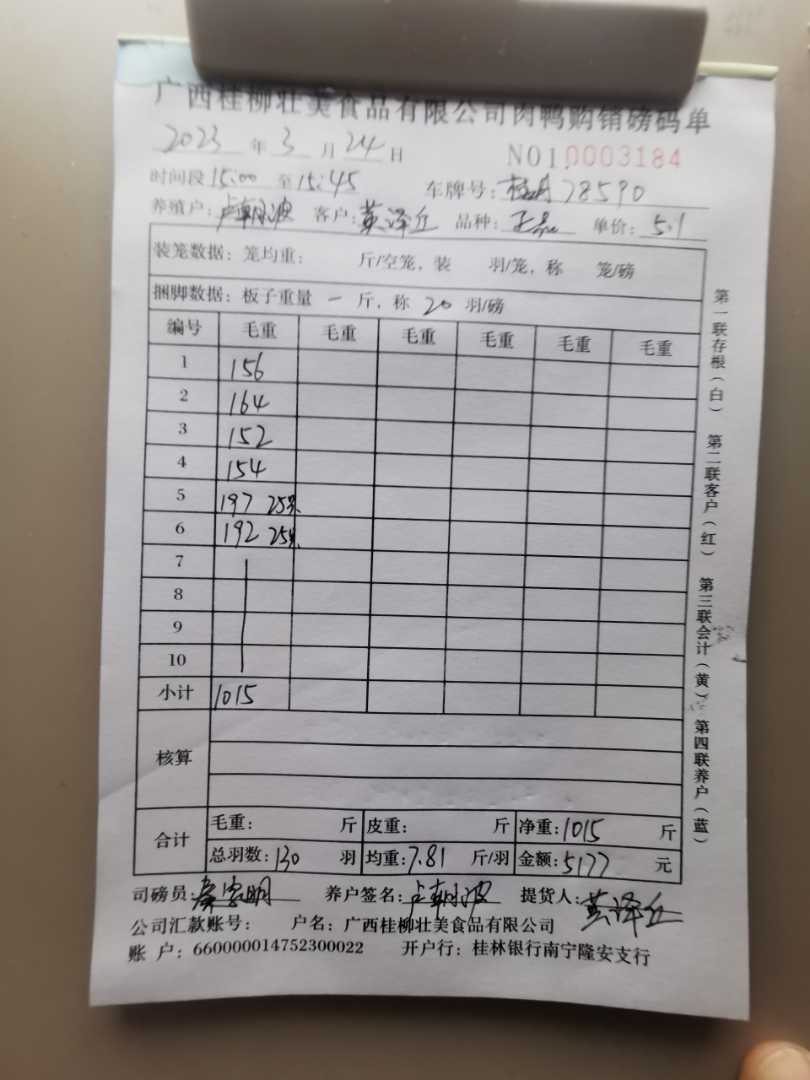 广西桂柳壮美食品有限公司肉鸭购销磅码单
2023 年 3 月 24 日 NO1.0003184
时间段 15:00 至 15:45 车牌号: 78590
养殖户: 卢朝波 客户: 黄泽丘 品种: 正品 单价: 5.1
装笼数据: 笼均重: 斤/空笼, 装 羽/笼, 称 笼/磅
捆脚数据: 板子重量 一 斤, 称 20 羽/磅
编号 毛重 毛重 毛重 毛重 毛重 毛重
1 156
2 164
3 152
4 154
5 197 25只
6 192 25只
7
8
9
10
小计 1015
核算
合计 毛重: 斤 皮重: 斤 净重: 1015 斤
总羽数: 130 羽 均重: 7.81 斤/羽 金额: 5177 元
司磅员: 养户签名: 卢朝波 提货人: 黄泽丘
公司汇款账号: 户名: 广西桂柳壮美食品有限公司
账 户: 660000014752300022 开户行: 桂林银行南宁隆安支行
第一联存根(白) 第二联客户(红) 第三联会计(黄) 第四联养户(蓝)